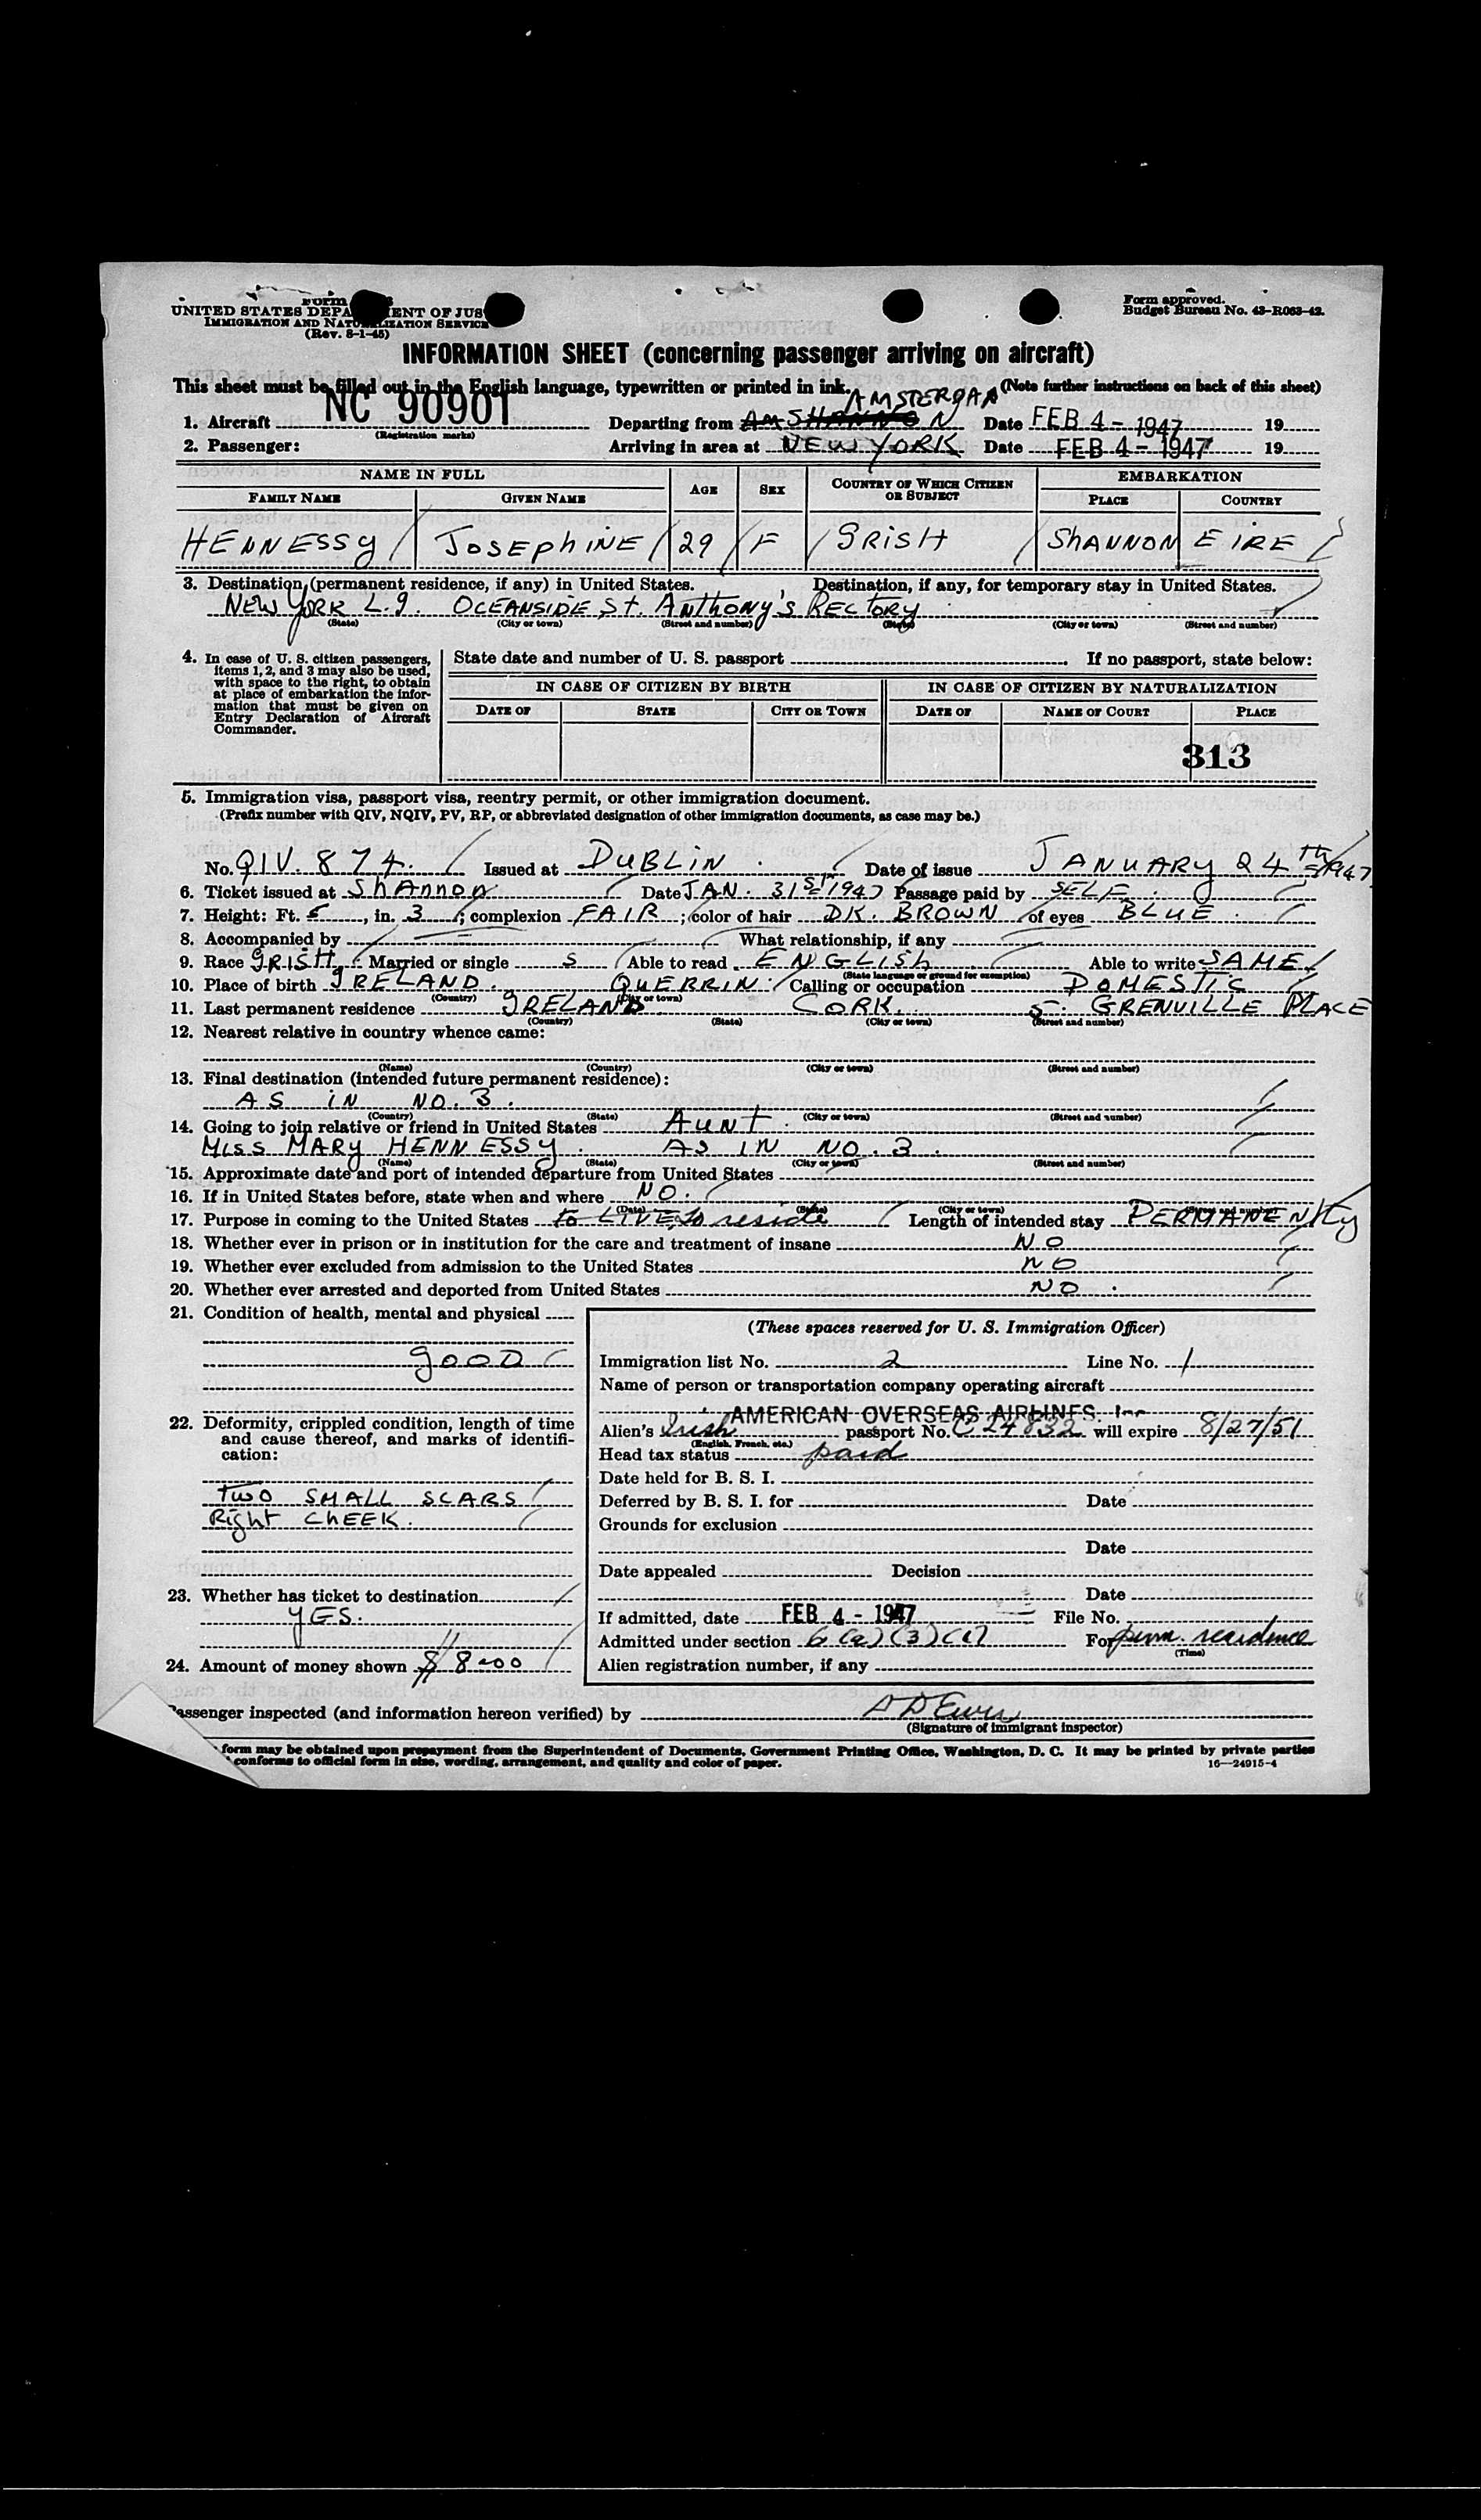 UNITED STATES DEPA ENT OF JUS
IMMIGRATION AND NATURALIZATION SERVICE
(Rev. 8-1-45)
Form approved.
Budget Bureau No. 43-R063-42.
INFORMATION SHEET (concerning passenger arriving on aircraft)
This sheet must be filled out in the English language, typewritten or printed in ink. (Note further instructions on back of this sheet)
1. Aircraft NC 90901 Departing from AMSTERDAM Date FEB 4 - 1947 19
(Registration marks)
2. Passenger: Arriving in area at NEW YORK Date FEB 4 - 1947 19
NAME IN FULL AGE SEX COUNTRY OF WHICH CITIZEN OR SUBJECT EMBARKATION
FAMILY NAME GIVEN NAME PLACE COUNTRY
HENNESSY JOSEPHINE 29 F IRISH SHANNON EIRE
3. Destination (permanent residence, if any) in United States. Destination, if any, for temporary stay in United States.
NEW YORK L.I. OCEANSIDE, St. Anthony's RECTORY
(State) (City or town) (Street and number) (State) (City or town) (Street and number)
4. In case of U. S. citizen passengers, items 1, 2, and 3 may also be used, with space to the right, to obtain at place of embarkation the information that must be given on Entry Declaration of Aircraft Commander.
State date and number of U. S. passport If no passport, state below:
IN CASE OF CITIZEN BY BIRTH IN CASE OF CITIZEN BY NATURALIZATION
DATE OF STATE CITY OR TOWN DATE OF NAME OF COURT PLACE
313
5. Immigration visa, passport visa, reentry permit, or other immigration document.
(Prefix number with QIV, NQIV, PV, RP, or abbreviated designation of other immigration documents, as case may be.)
No. QIV. 874. Issued at DUBLIN. Date of issue JANUARY 24th 1947
6. Ticket issued at Shannon Date JAN. 31st 1947 Passage paid by SELF.
7. Height: Ft. 5, in. 3; complexion FAIR; color of hair DK. BROWN of eyes BLUE.
8. Accompanied by What relationship, if any
9. Race IRISH Married or single S Able to read ENGLISH Able to write SAME
(State language or ground for exemption)
10. Place of birth IRELAND. QUERRIN. Calling or occupation DOMESTIC
(Country) (City or town)
11. Last permanent residence IRELAND CORK. 5. GRENVILLE PLACE
(Country) (State) (City or town) (Street and number)
12. Nearest relative in country whence came:
(Name) (Country) (City or town) (Street and number)
13. Final destination (intended future permanent residence):
AS IN NO. 3.
(Country) (State) (City or town) (Street and number)
14. Going to join relative or friend in United States AUNT.
MISS MARY HENNESSY. AS IN NO. 3.
(Name) (State) (City or town) (Street and number)
15. Approximate date and port of intended departure from United States
16. If in United States before, state when and where NO.
(Date) (State) (City or town) (Street and number)
17. Purpose in coming to the United States to LIVE, to reside Length of intended stay PERMANENTLY
18. Whether ever in prison or in institution for the care and treatment of insane NO
19. Whether ever excluded from admission to the United States NO
20. Whether ever arrested and deported from United States NO.
21. Condition of health, mental and physical
GOOD
22. Deformity, crippled condition, length of time and cause thereof, and marks of identification:
TWO SMALL SCARS
Right CHEEK.
23. Whether has ticket to destination
YES.
24. Amount of money shown $ 8-00
(These spaces reserved for U. S. Immigration Officer)
Immigration list No. 2 Line No. 1
Name of person or transportation company operating aircraft
AMERICAN OVERSEAS AIRLINES, Inc
Alien's Irish passport No. C 24832 will expire 8/27/51
(English, French, etc.)
Head tax status paid
Date held for B. S. I.
Deferred by B. S. I. for Date
Grounds for exclusion
Date
Date appealed Decision
Date
If admitted, date FEB 4 - 1947 File No.
Admitted under section 6(a)(3)(1) For perm. residence
(Time)
Alien registration number, if any
Passenger inspected (and information hereon verified) by
(Signature of immigrant inspector)
form may be obtained upon prepayment from the Superintendent of Documents, Government Printing Office, Washington, D. C. It may be printed by private parties
conforms to official form in size, wording, arrangement, and quality and color of paper. 16—24915-4